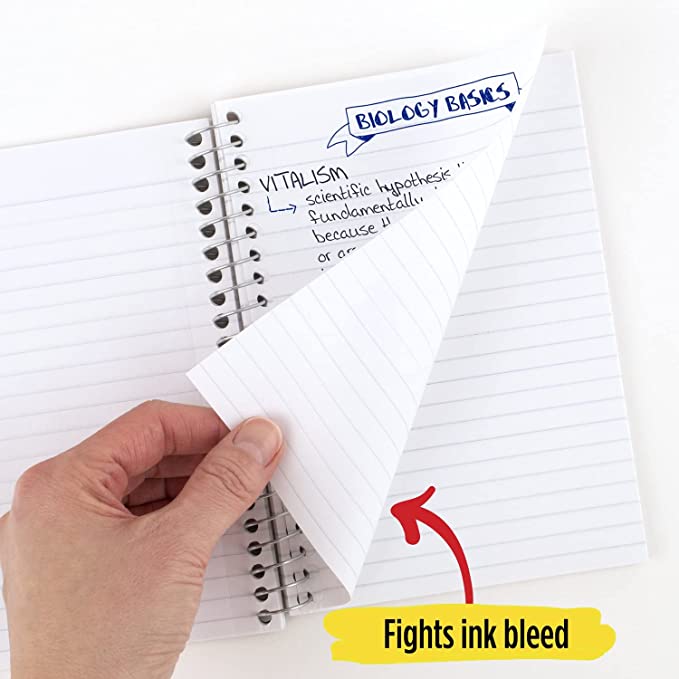 BIOLOGY BASICS
VITALISM
scientific hypothesis
fundamentally
because
or
Fights ink bleed